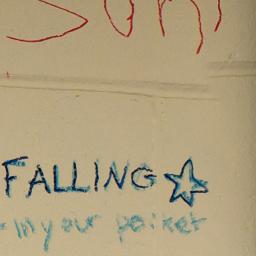 FALLING
in your pocket